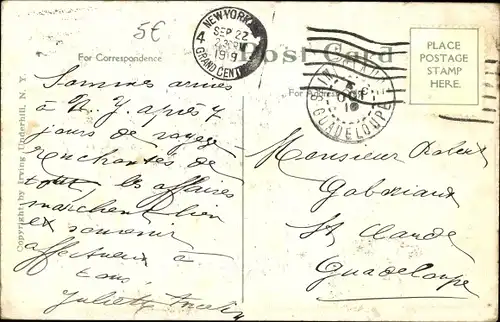 5€
Post Card
For Correspondence
For Address
PLACE
POSTAGE
STAMP
HERE.
NEW YORK
SEP 22
1919
4
GRAND CENT
OCT
19
GUADELOUPE
Copyright by Irving Underhill, N. Y.
Sommes
à N. Y. après 7
jours de voyage
enchantés de
tout, les affaires
marchent bien
et souvenir
affectueux à
tous,
Monsieur Robert
St Claude
Guadeloupe